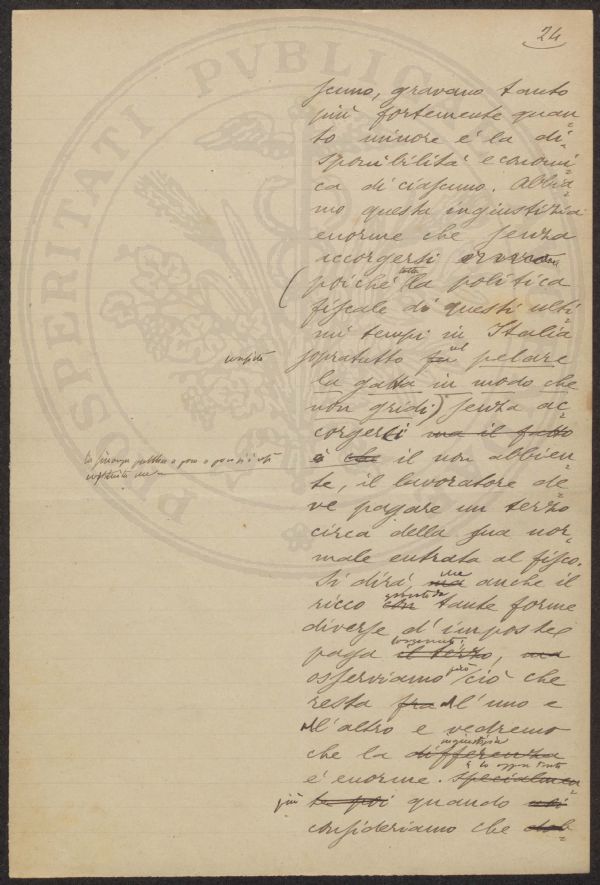 24
scuno, gravano tanto
più fortemente quan=
to minore é la di=
sponibilità economi=
ca di ciascuno. Abbia=
mo questa ingiustizia
enorme che senza
accorgersi
(poiché tutta la politica
fiscale di questi ulti=
mi tempi in Italia
sopratutto fu nel pelare
la gatta in modo che
non gridi) senza ac=
corgersi ma il fatto
é che il non abbien=
te, il lavoratore de=
ve pagare un terzo
circa della sua nor=
male entrata al fisco.
Si dirà ma che anche il
ricco con tante forme
diverse d'imposte
paga il terzo, ma
osserviamo però ciò che
resta fra all'uno e
all'altro e vedremo
che la differenza ingiustizia
é enorme. specialmen=
te poi più quando
consideriamo che dob=
PROSPERITATI PUBLICAE